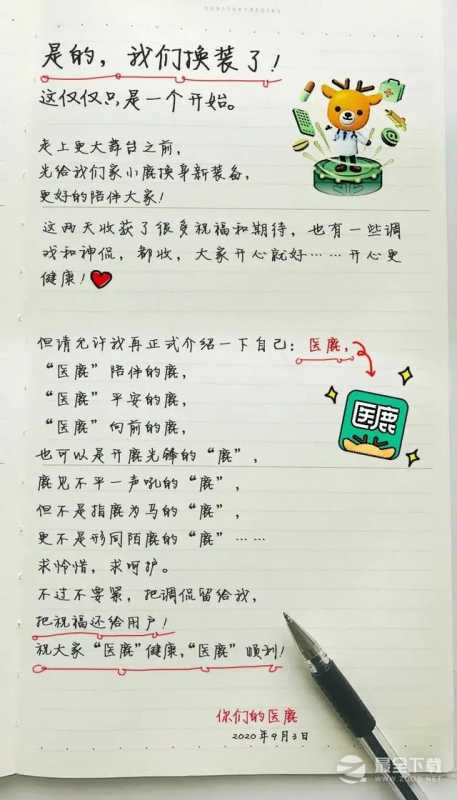 是的，我们换装了！
这仅仅只是一个开始。
走上更大舞台之前，
先给我们家小鹿换身新装备，
更好的陪伴大家！
这两天收获了很多祝福和期待，也有一些调
戏和神侃，都收，大家开心就好……开心更
健康！
但请允许我再正式介绍一下自己：医鹿，
“医鹿”陪伴的鹿，
“医鹿”平安的鹿，
医鹿
“医鹿”向前的鹿，
也可以是开鹿先锋的“鹿”，
鹿见不平一声吼的“鹿”，
但不是指鹿为马的“鹿”，
更不是形同陌鹿的“鹿”……
求怜惜，求呵护。
不过不要紧，把调侃留给我，
把祝福还给用户！
祝大家“医鹿”健康，“医鹿”顺利！
你们的医鹿
2020年9月3日
最全下载